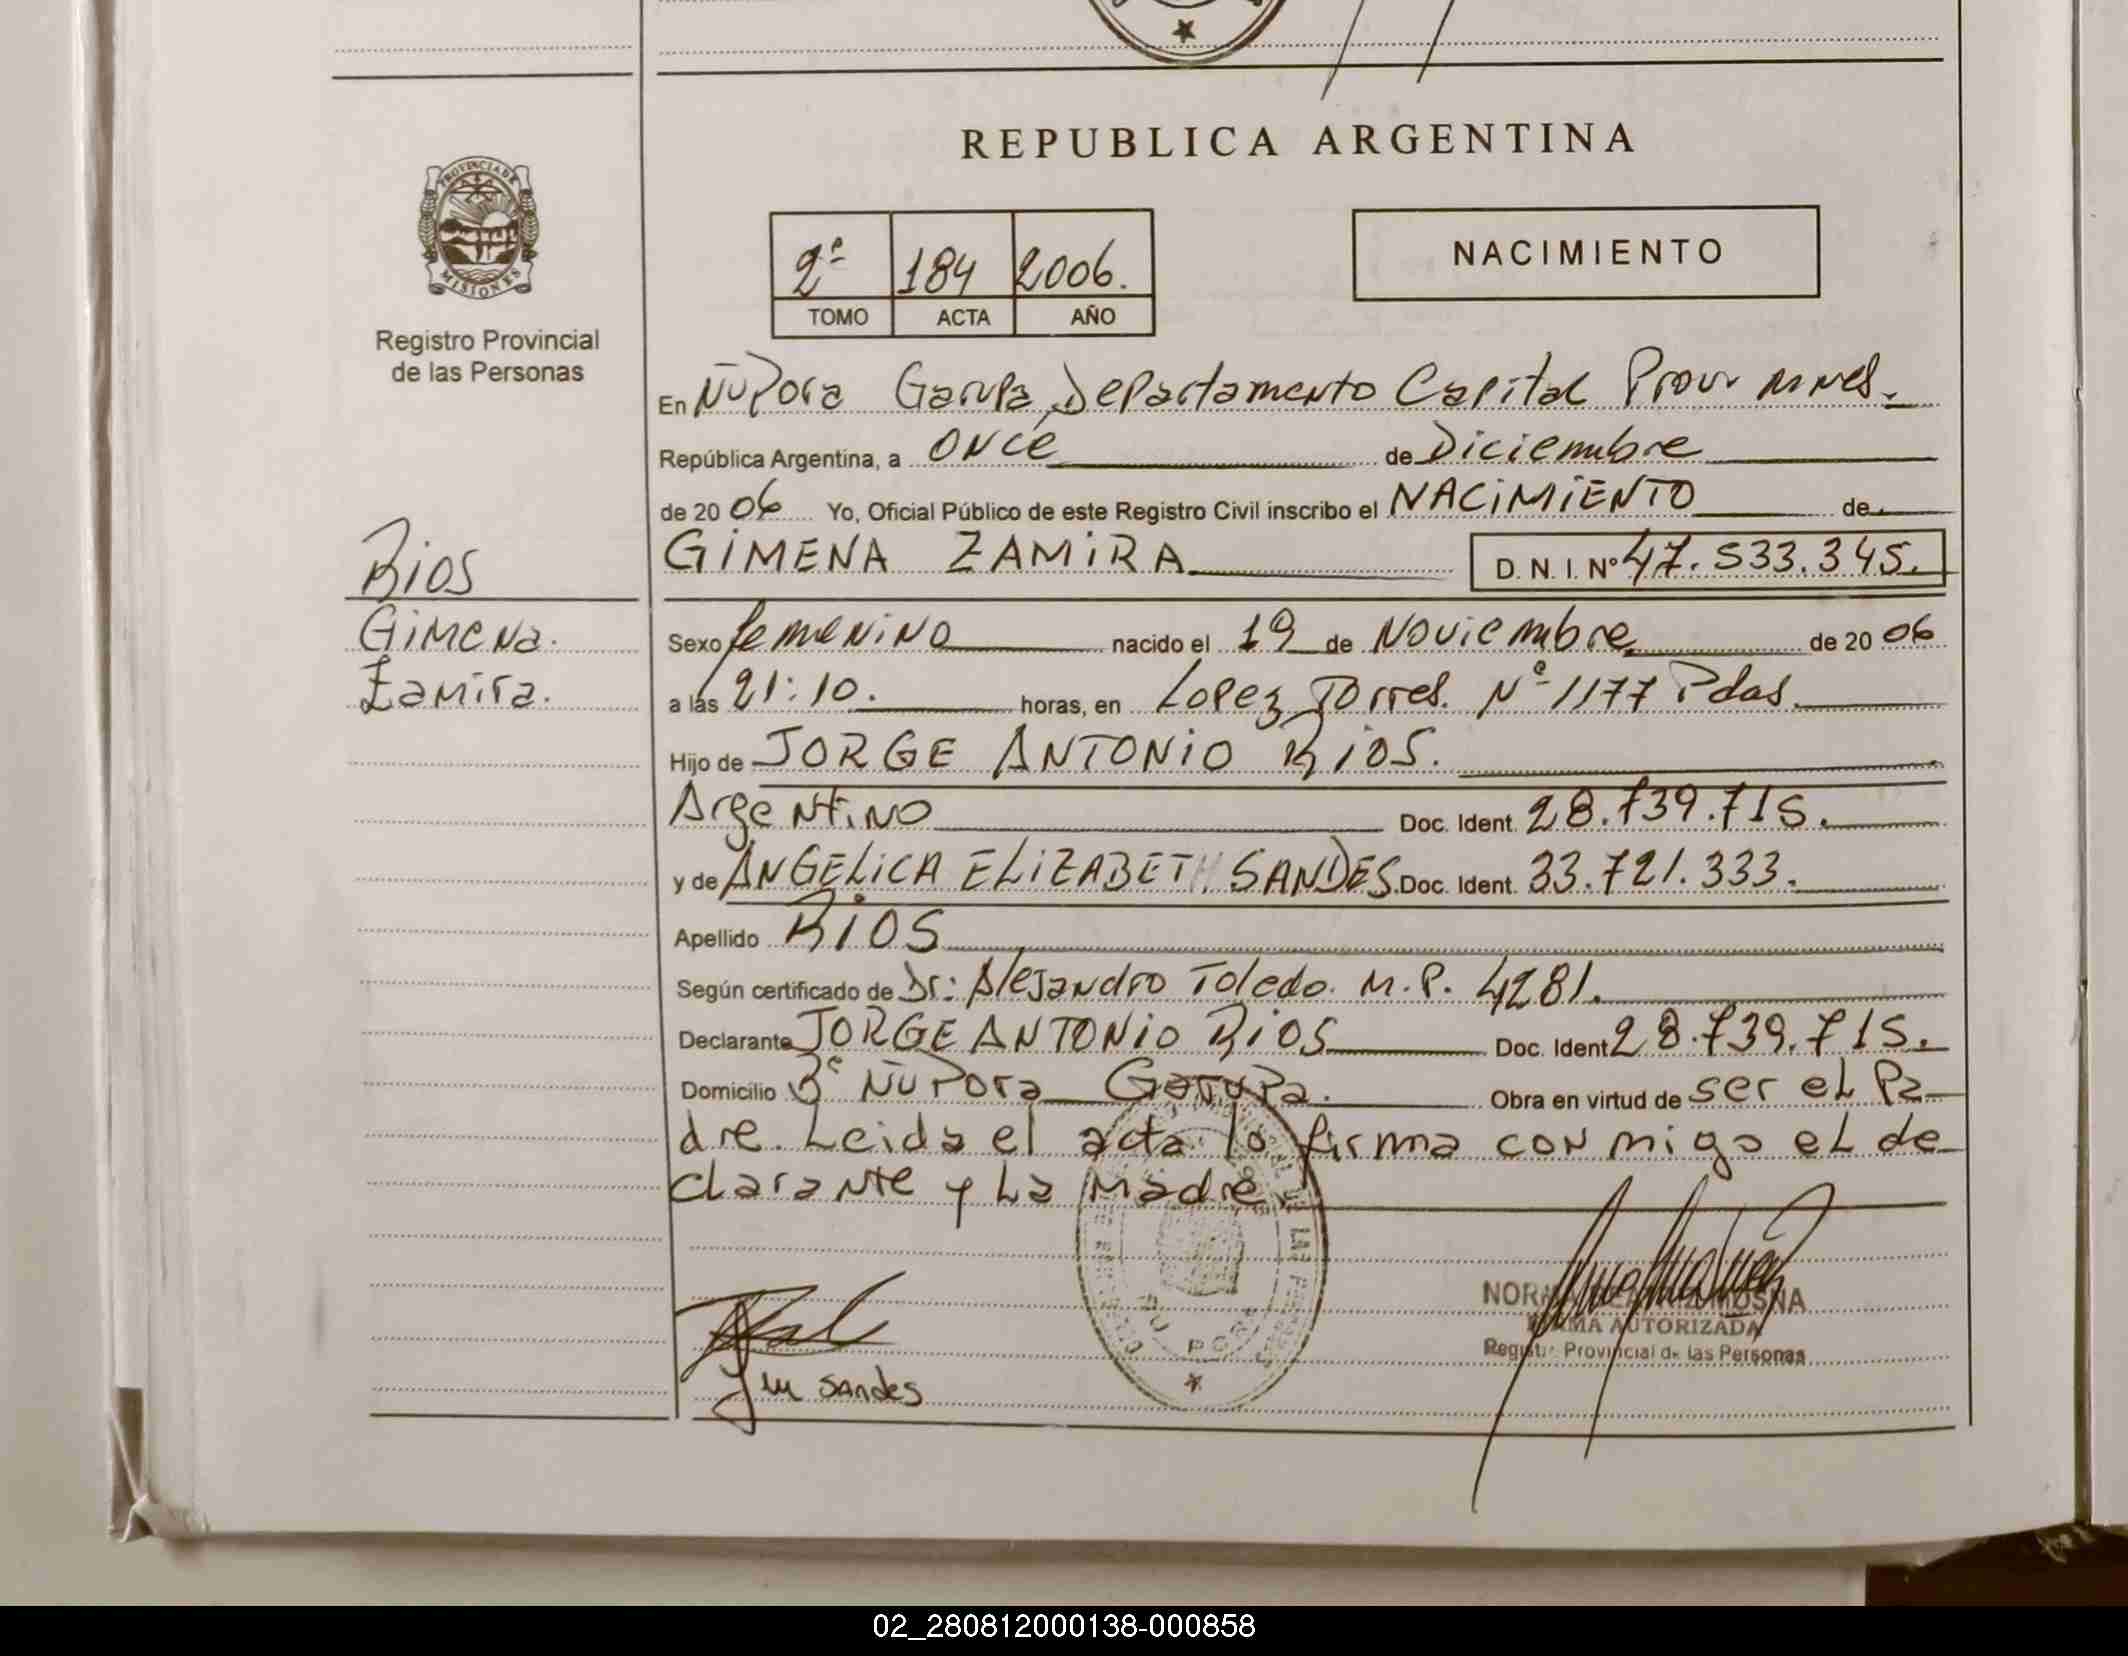 REPUBLICA ARGENTINA
PROVINCIA DE
MISIONES
Registro Provincial
de las Personas
2º 184 2006.
TOMO ACTA AÑO
NACIMIENTO
En ÑuPora Garupa, Departamento Capital Prov. Mnes.
República Argentina, a once de Diciembre
de 20 06 Yo, Oficial Público de este Registro Civil inscribo el NACIMIENTO de
GIMENA ZAMIRA D. N. I. Nº 47.533.345.
Rios
Gimena.
Zamira.
Sexo femenino nacido el 19 de Noviembre de 20 06
a las 21:10. horas, en Lopez Torres. Nº 1177 Pdas.
Hijo de JORGE ANTONIO RIOS.
Argentino Doc. Ident. 28.739.715.
y de ANGELICA ELIZABETH SANDES. Doc. Ident. 33.721.333.
Apellido RIOS
Según certificado de Dr: Alejandro Toledo. M.P. 4281.
Declarante JORGE ANTONIO RIOS Doc. Ident 28.739.715.
Domicilio Bº ÑuPora Garupa. Obra en virtud de ser el Pa-
dre. Leida el acta lo firma conmigo el de-
clarante y La Madre
NORMA MOSNA
FIRMA AUTORIZADA
Registro Provincial de las Personas
ÑU PORA
Sandes
02_280812000138-000858